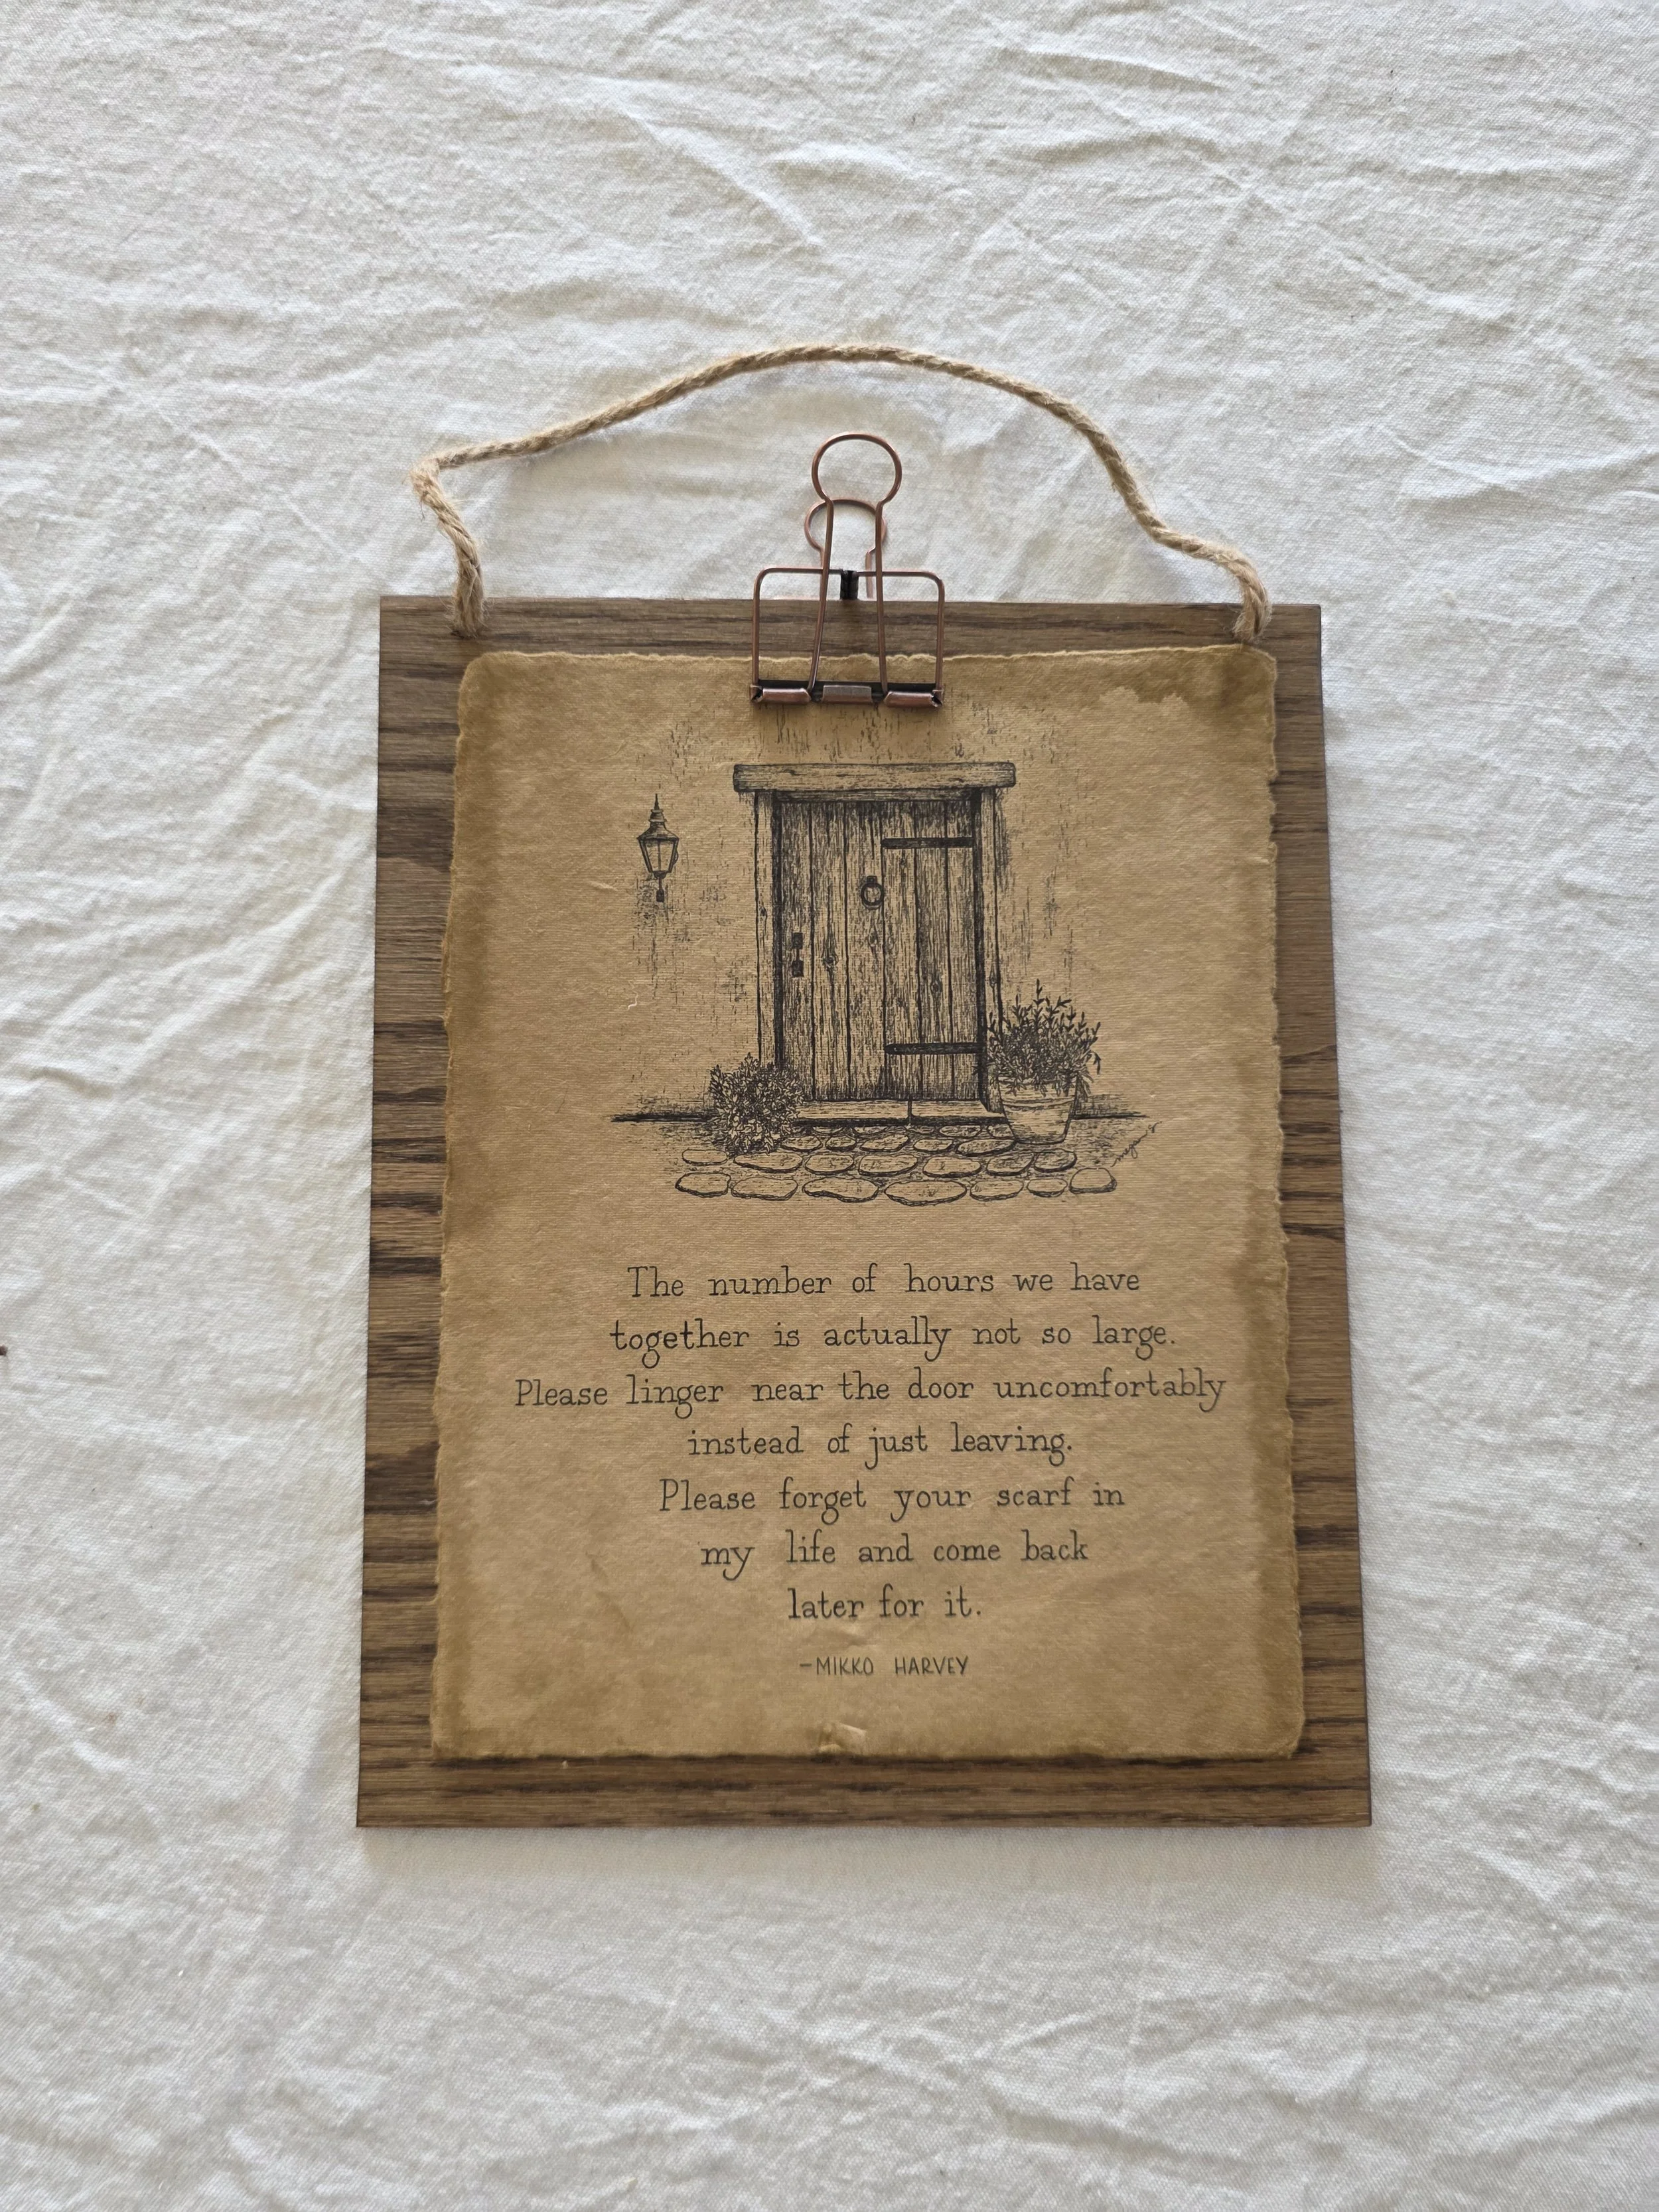 The number of hours we have
together is actually not so large.
Please linger near the door uncomfortably
instead of just leaving.
Please forget your scarf in
my life and come back
later for it.
-MIKKO HARVEY